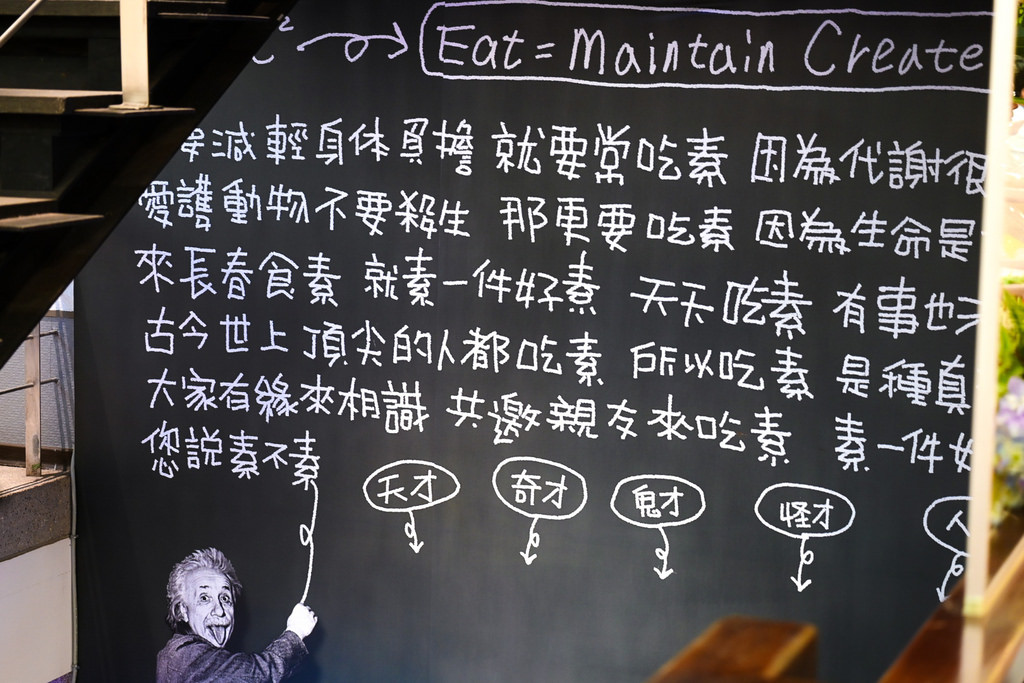 c² → Eat = Maintain Create
減輕身体負擔 就要常吃素 因為代謝很
愛護動物不要殺生 那更要吃素 因為生命是
來長春食素 就素一件好素 天天吃素 有事也
古今世上頂尖的人都吃素 所以吃素 是種真
大家有緣來相識 共邀親友來吃素 素一件
您說素不素
天才 奇才 鬼才 怪才 人